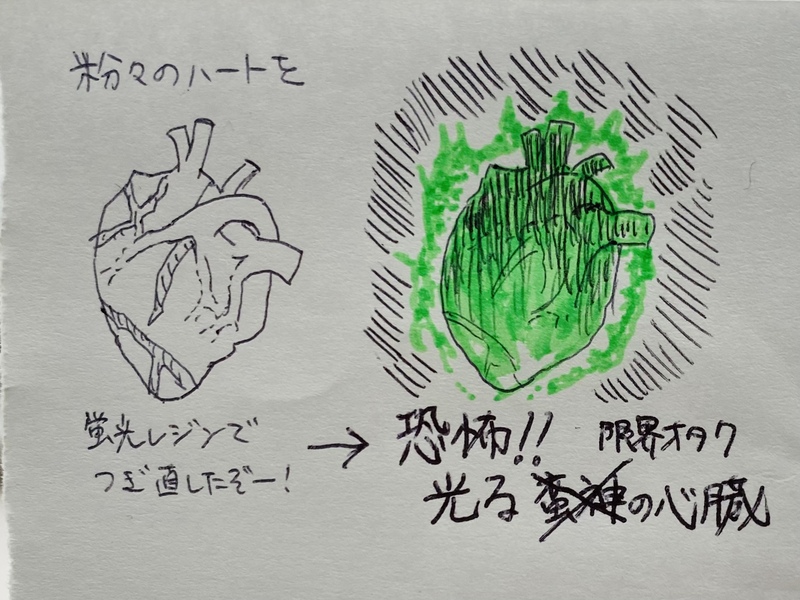 粉々のハートを
蛍光レジンで
つぎ直したぞー!
→ 恐怖!! 限界オタク
光る蛮神の心臓